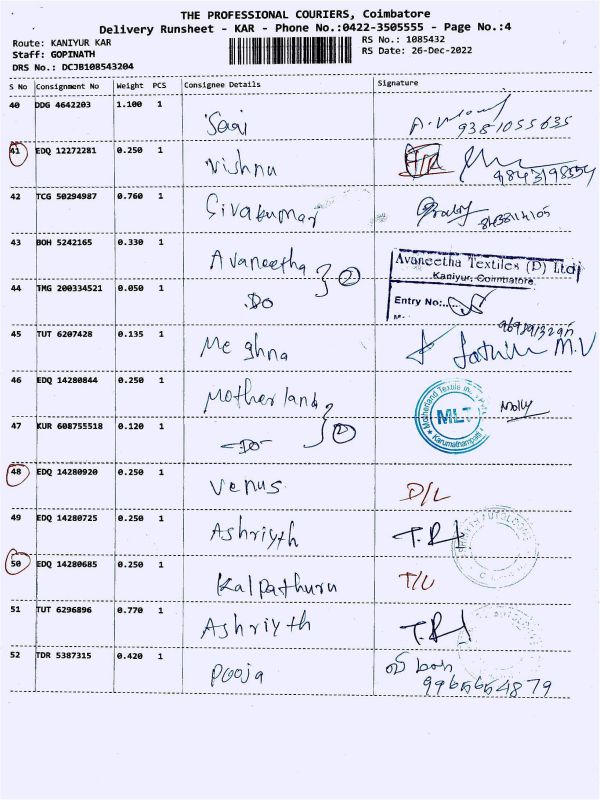 THE PROFESSIONAL COURIERS, Coimbatore
Delivery Runsheet - KAR - Phone No.:0422-3505555 - Page No.:4
Route: KANIYUR KAR
RS No.: 1085432
Staff: GOPINATH
RS Date: 26-Dec-2022
DRS No.: DCJB108543204
S No Consignment No Weight PCS Consignee Details Signature
40 DDG 4642203 1.100 1
Saai
9381055635
41 EDQ 12272281 0.250 1
Vishnu
9843198554
42 TCG 50294987 0.760 1
Sivakumar
43 BOH 5242165 0.330 1
Avaneetha
2
Avaneetha Textiles (P) Ltd
Kaniyur, Coimbatore.
44 TMG 200334521 0.050 1
Do
Entry No:..
45 TUT 6207428 0.135 1
Meghna
M.V
46 EDQ 14280844 0.250 1
Motherland
2
MLT
Karumathampatti
Molly
47 KUR 608755518 0.120 1
-Do-
48 EDQ 14280920 0.250 1
Venus
D/L
49 EDQ 14280725 0.250 1
Ashriyth
50 EDQ 14280685 0.250 1
Kalpathuru
T/L
51 TUT 6296896 0.770 1
Ashriyth
52 TDR 5387315 0.420 1
Pooja
9965654879